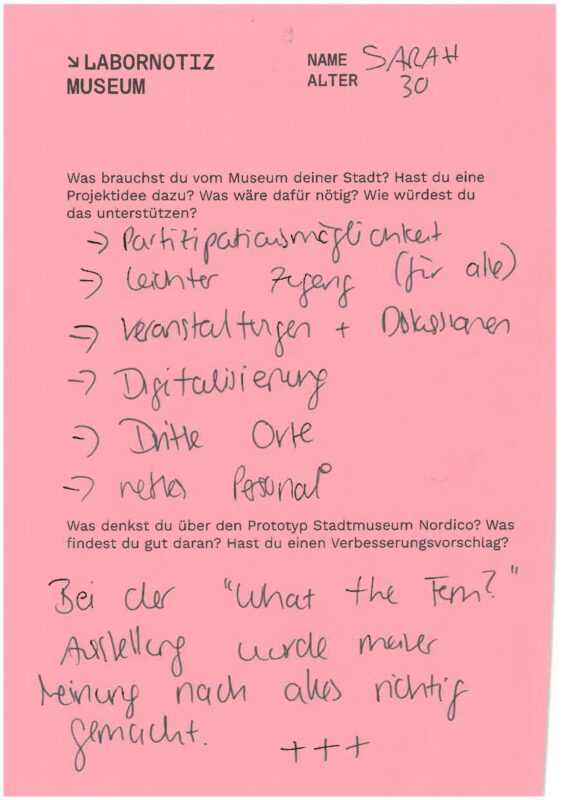 ↘ LABORNOTIZ
MUSEUM
NAME SARAH
ALTER 30
Was brauchst du vom Museum deiner Stadt? Hast du eine
Projektidee dazu? Was wäre dafür nötig? Wie würdest du
das unterstützen?
→ Partitipationsmöglichkeit
→ leichter Zugang (für alle)
→ Veranstaltungen + Diskussionen
→ Digitalisierung
→ Dritte Orte
→ nettes Personal
Was denkst du über den Prototyp Stadtmuseum Nordico? Was
findest du gut daran? Hast du einen Verbesserungsvorschlag?
Bei der "What the Fem?"
Ausstellung wurde meiner
Meinung nach alles richtig
gemacht. +++